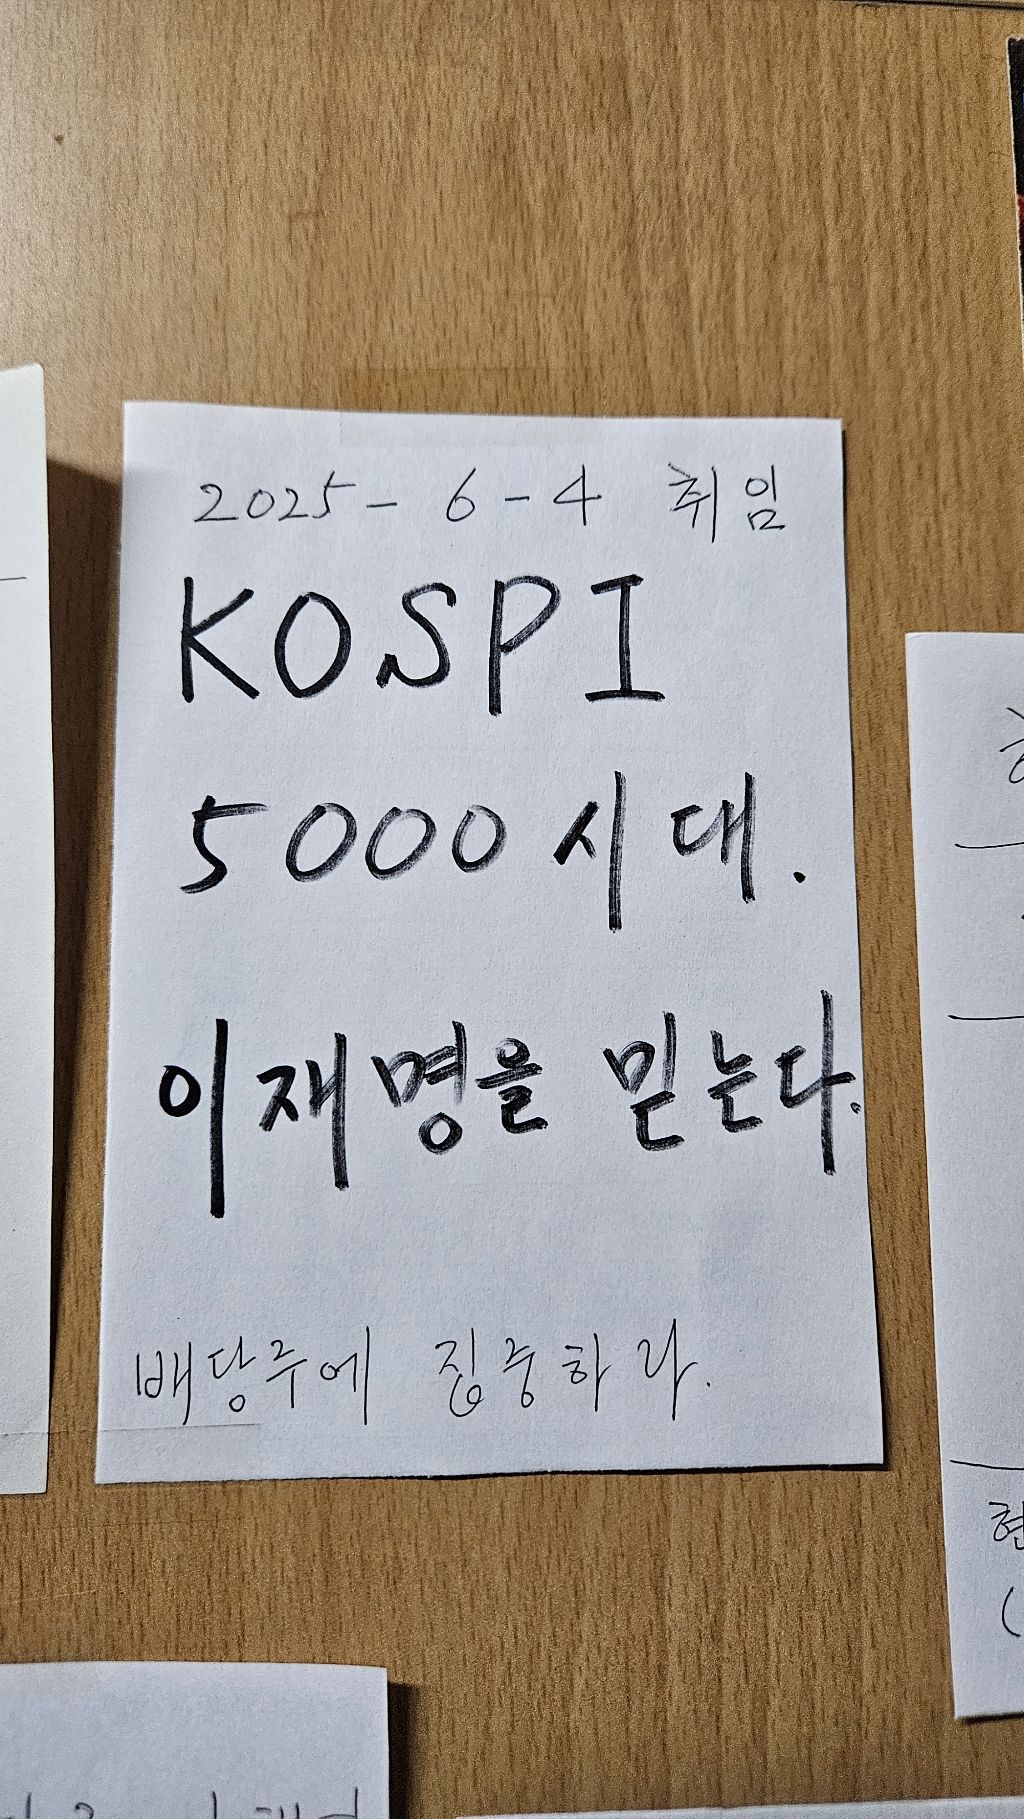 2025-6-4 취임
KOSPI
5000시대.
이재명을 믿는다.
배당주에 집중하라.